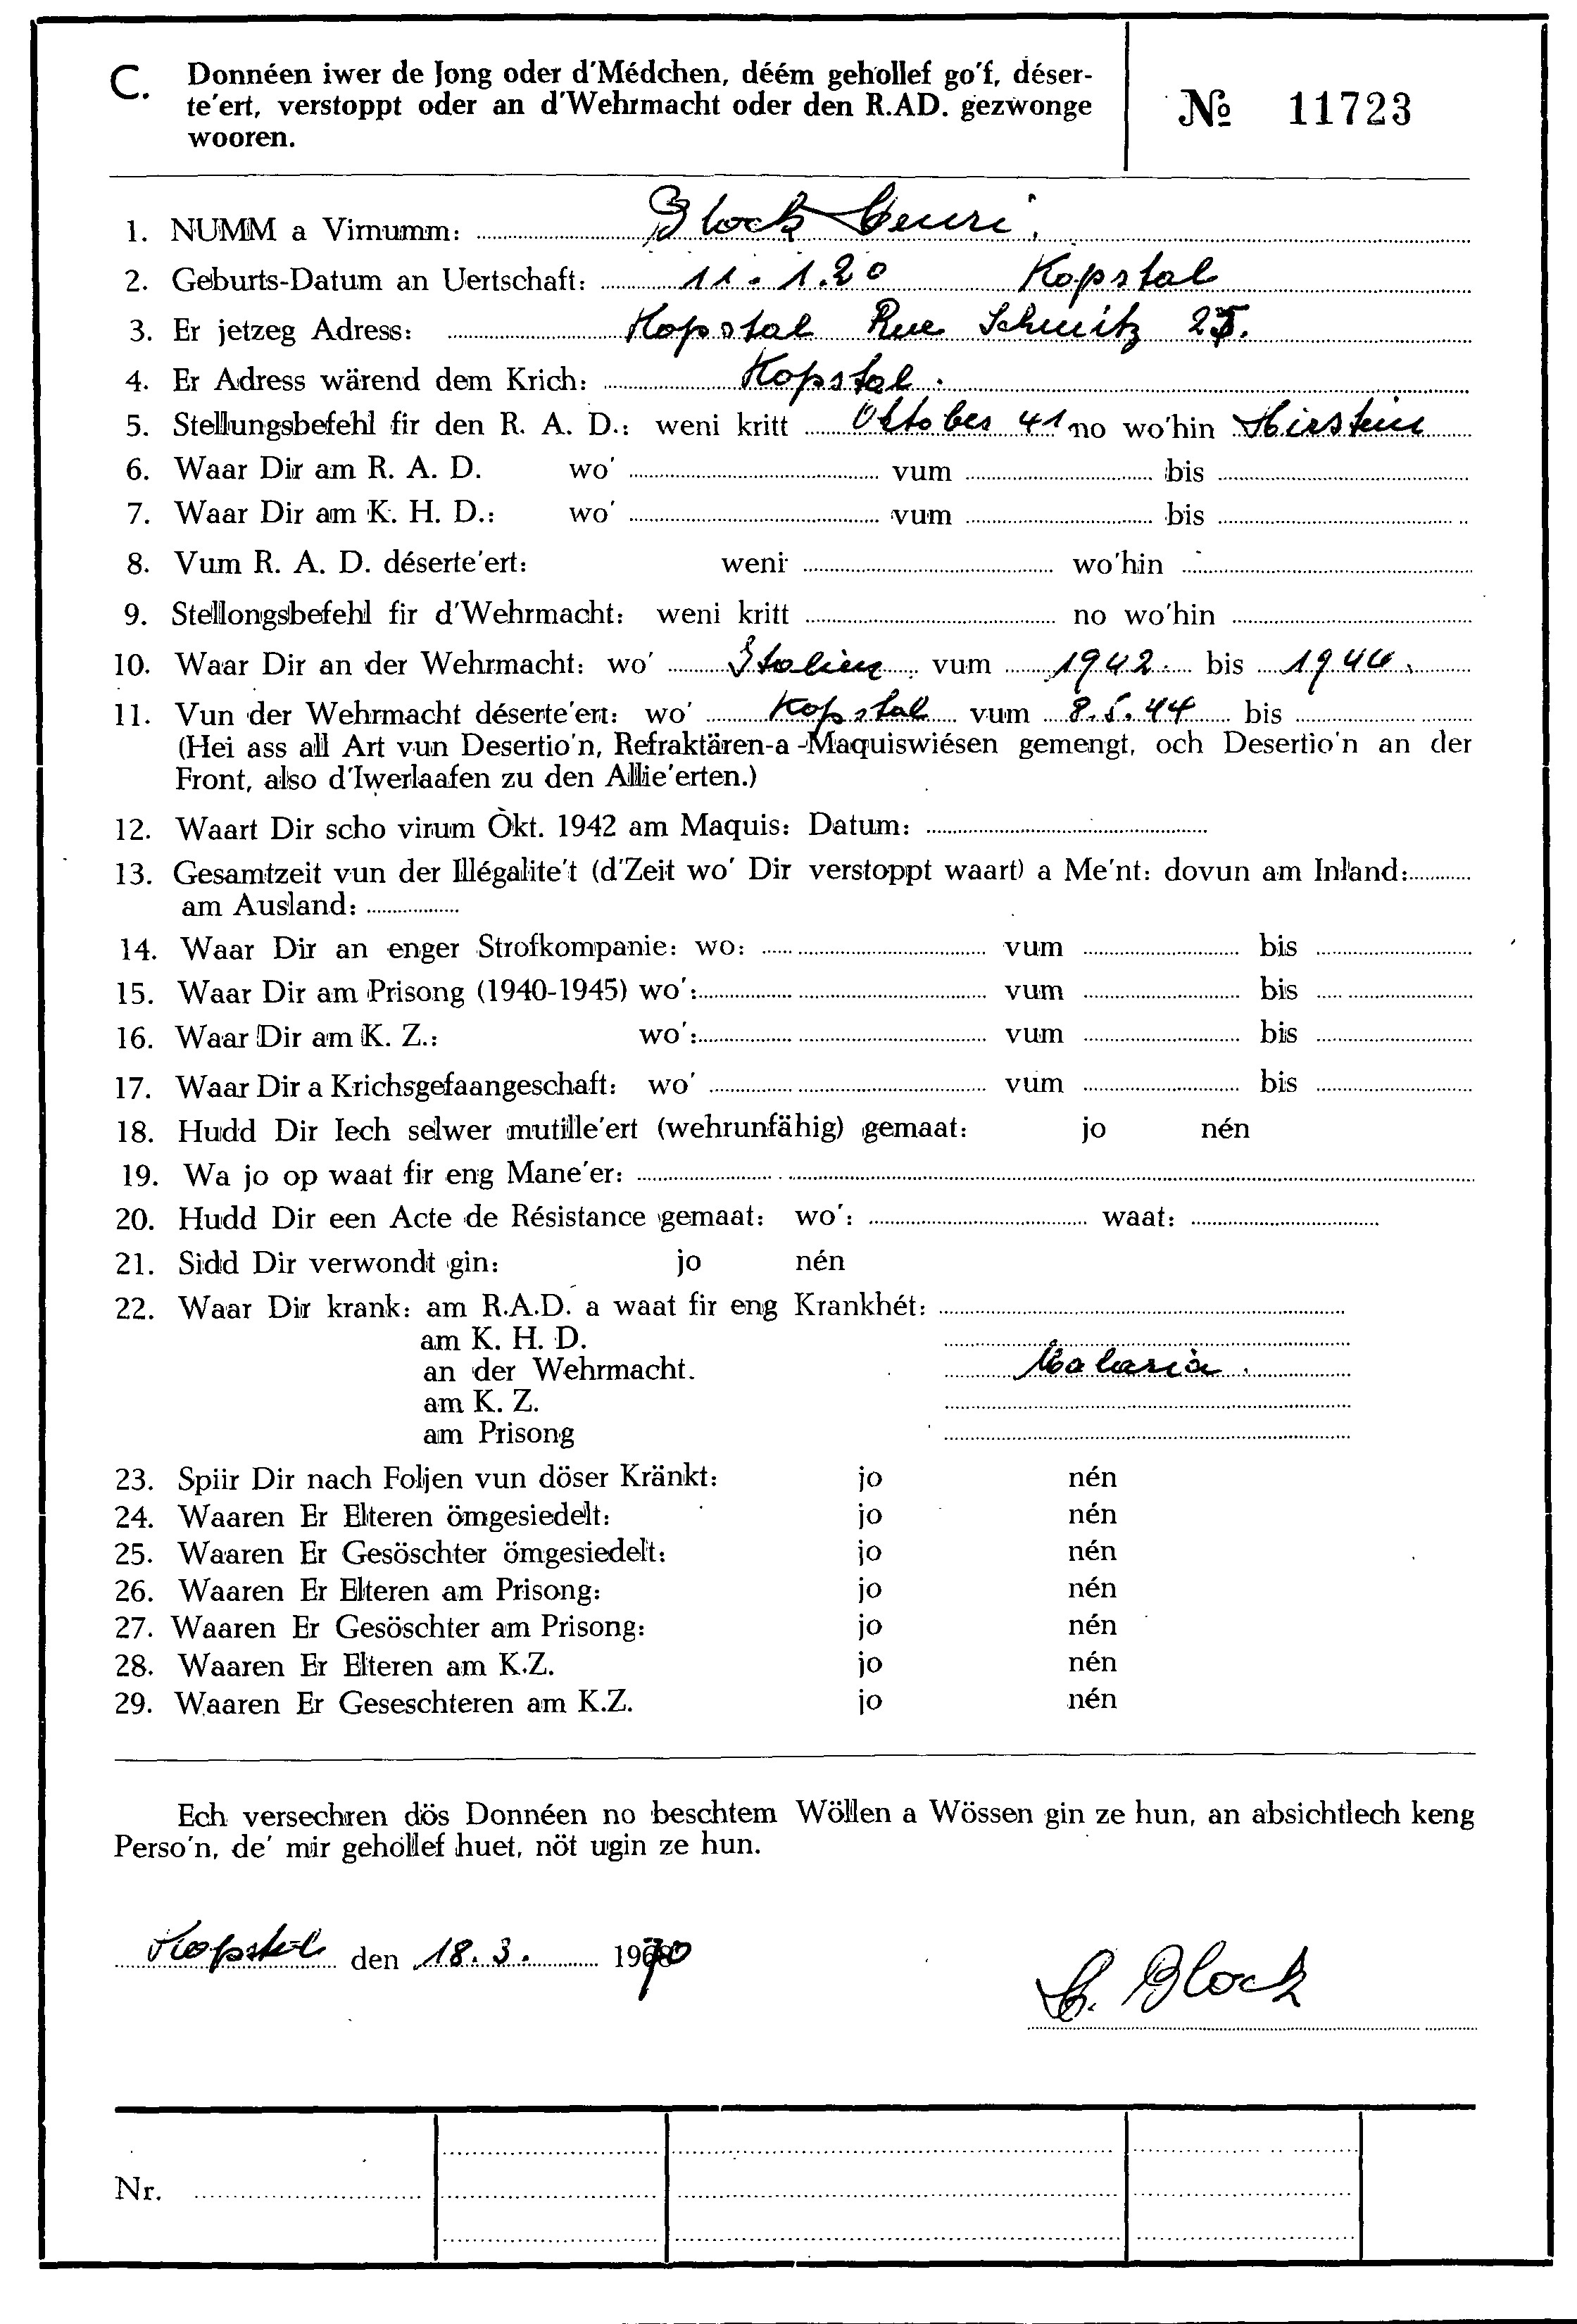 C. Donnéen iwer de Jong oder d'Médchen, déém gehollef go'f, déser-
te'ert, verstoppt oder an d'Wehrmacht oder den R.AD. gezwonge
wooren.
№ 11723
1. NUMM a Virnumm: Block Henri.
2. Geburts-Datum an Uertschaft: 11.1.20 Kopstal
3. Er jetzeg Adress: Kopstal Rue Schmitz
4. Er Adress wärend dem Krich: Kopstal.
5. Stellungsbefehl fir den R. A. D.: weni kritt Oktober 41 no wo'hin Hirstein
6. Waar Dir am R. A. D. wo' vum bis
7. Waar Dir am K. H. D.: wo' vum bis
8. Vum R. A. D. déserte'ert: weni wo'hin
9. Stellongsbefehl fir d'Wehrmacht: weni kritt no wo'hin
10. Waar Dir an der Wehrmacht: wo' Italien vum 1942. bis 1944.
11. Vun der Wehrmacht déserte'ert: wo' Kopstal vum 8.5.44 bis
(Hei ass all Art vun Desertio'n, Refraktären-a-Maquiswiésen gemengt, och Desertio'n an der
Front, also d'Iwerlaafen zu den Allie'erten.)
12. Waart Dir scho virum Okt. 1942 am Maquis: Datum:
13. Gesamtzeit vun der Illégalite't (d'Zeit wo' Dir verstoppt waart) a Me'nt: dovun am Inland:
am Ausland:
14. Waar Dir an enger Strofkompanie: wo: vum bis
15. Waar Dir am Prisong (1940-1945) wo': vum bis
16. Waar Dir am K. Z.: wo': vum bis
17. Waar Dir a Krichsgefaangeschaft: wo' vum bis
18. Hudd Dir Iech selwer mutille'ert (wehrunfähig) gemaat: jo nén
19. Wa jo op waat fir eng Mane'er:
20. Hudd Dir een Acte de Résistance gemaat: wo': waat:
21. Sidd Dir verwondt gin: jo nén
22. Waar Dir krank: am R.A.D. a waat fir eng Krankhét:
am K. H. D.
an der Wehrmacht. Malaria.
am K. Z.
am Prisong
23. Spiir Dir nach Foljen vun döser Kränkt: jo nén
24. Waaren Er Elteren ömgesiedelt: jo nén
25. Waaren Er Gesöschter ömgesiedelt: jo nén
26. Waaren Er Elteren am Prisong: jo nén
27. Waaren Er Gesöschter am Prisong: jo nén
28. Waaren Er Elteren am K.Z. jo nén
29. Waaren Er Geseschteren am K.Z. jo nén
Ech versechren dös Donnéen no beschtem Wöllen a Wössen gin ze hun, an absichtlech keng
Perso'n, de' mir gehollef huet, nöt ugin ze hun.
Kopstal den 18.3. 1970
H. Block
Nr.